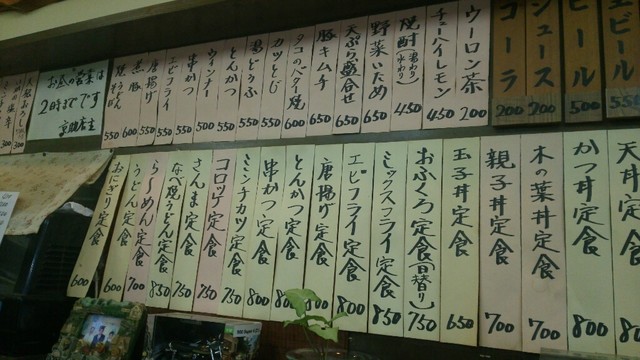 ビール
550
ビール
500
ジュース
200
コーラ
200
ウーロン茶
200
チューハイレモン
450
焼酎(湯わり 水わり)
450
野菜いため
650
天ぷら盛合せ
650
豚キムチ
650
タコのバター焼
600
カツとじ
550
湯どうふ
550
とんかつ
550
ウィンナー
500
串かつ
550
エビフライ
550
唐揚げ
550
お昼の営業は
2時までです
天丼定食
かつ丼定食
800
木の葉丼定食
700
親子丼定食
700
玉子丼定食
650
おふくろ定食(日替り)
750
ミックスフライ定食
850
エビフライ定食
800
唐揚げ定食
800
とんかつ定食
800
串かつ定食
800
ミンチカツ定食
750
コロッケ定食
750
さんま定食
750
なべ焼うどん定食
850
らーめん定食
700
うどん定食
600
おにぎり定食
600